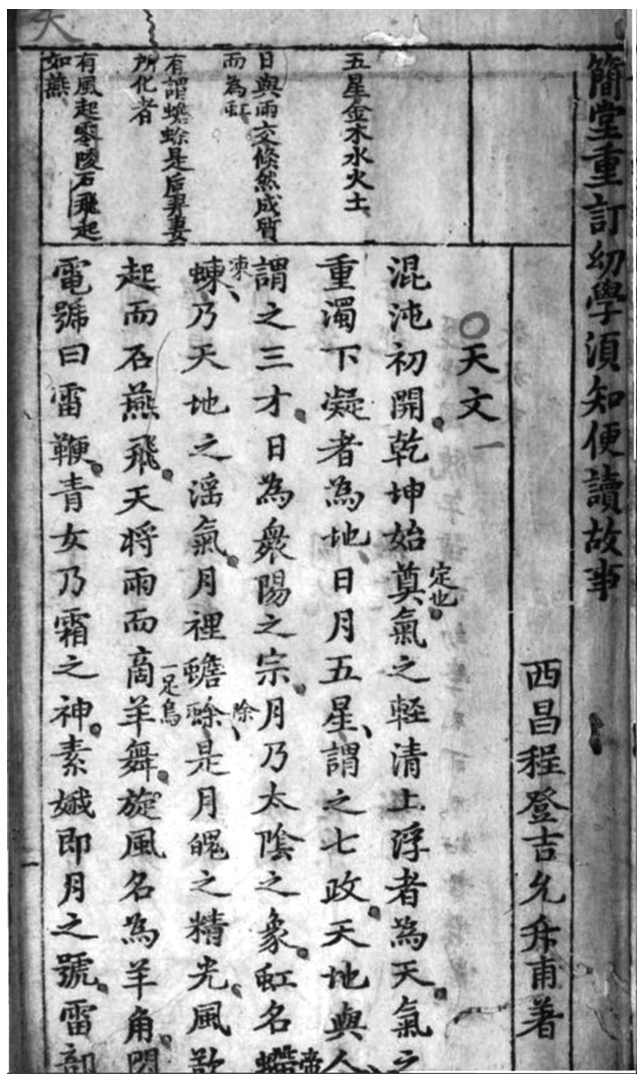 簡堂重訂幼學須知便讀故事
西昌程登吉允升甫著
天文
五星金木水火土
日與雨交倐然成質
而為虹
有謂蟾蜍是后羿妻
所化者
有風起零陵石飛起
如燕
混沌初開乾坤始奠定也氣之輕清上浮者為天氣之
重濁下凝者為地日月五星謂之七政天地與人
謂之三才日為衆陽之宗月乃太陰之象虹名螮帝
蝀凍乃天地之淫氣月裡蟾蜍除是月魄之精光風欲
起而石燕飛天将雨而啇一足鳥羊舞旋風名為羊角閃
電號曰雷鞭青女乃霜之神素娥即月之號雷部